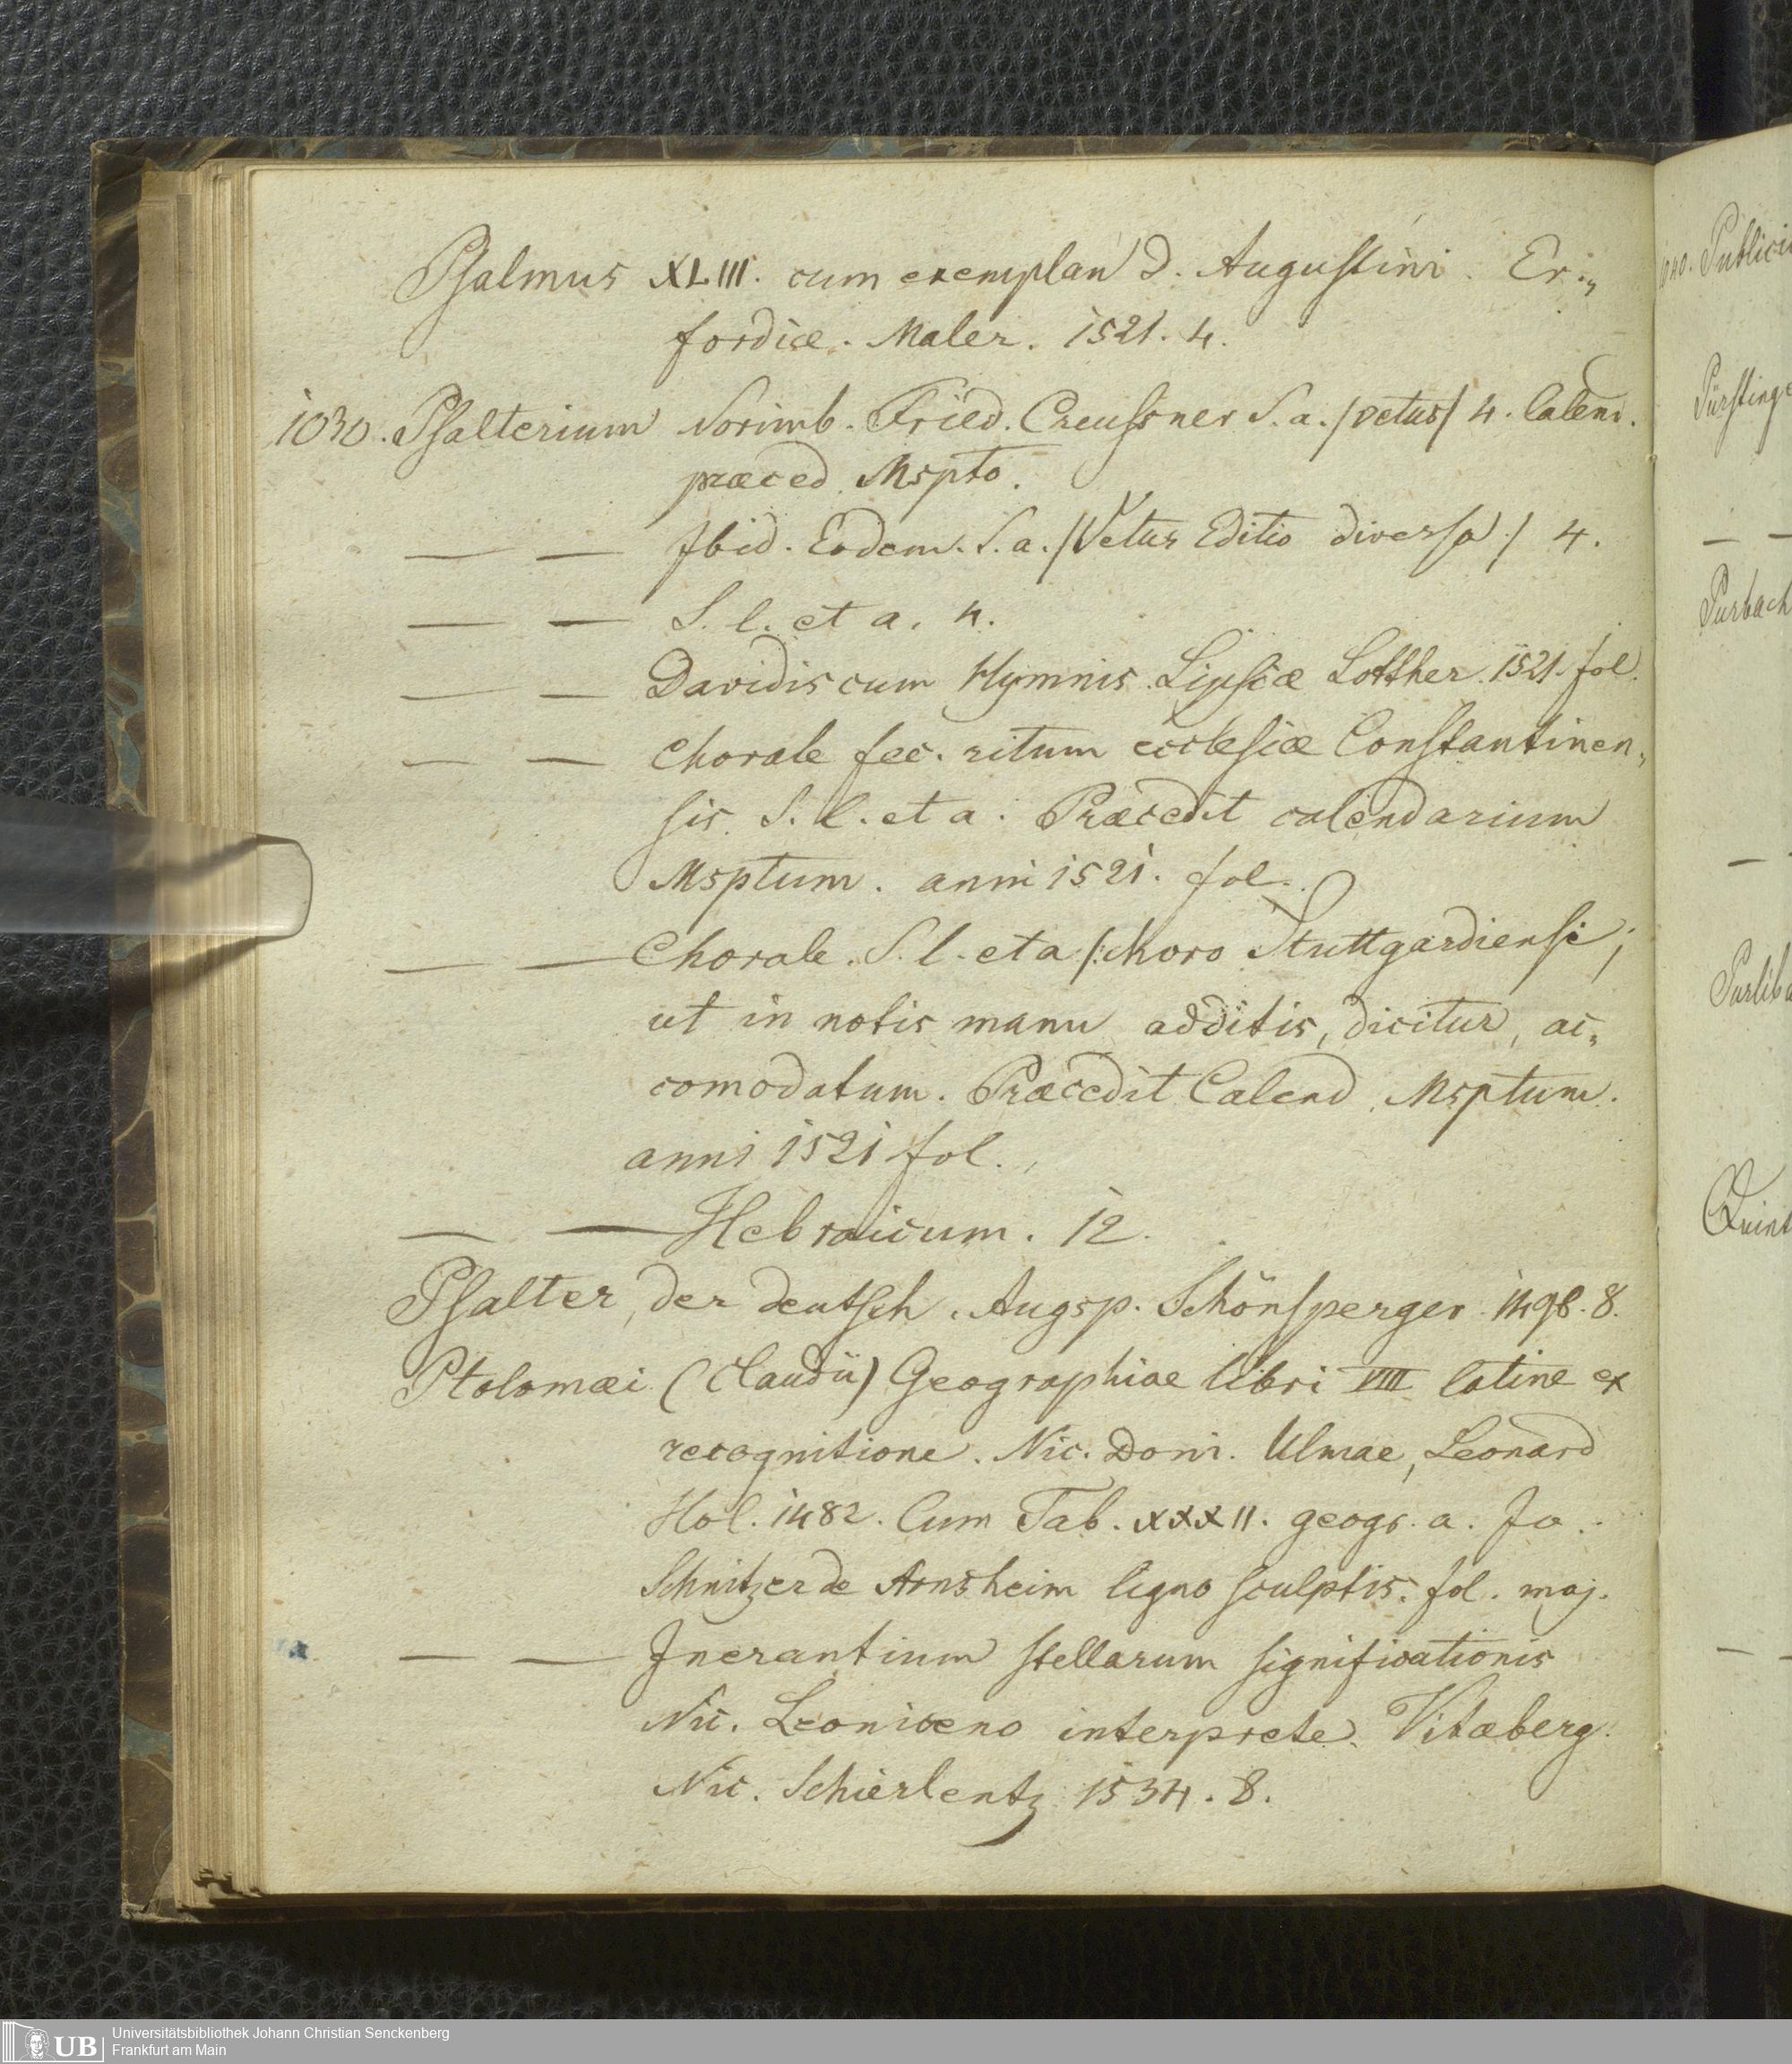 Psalmus XLIII. cum exemplari D. Augustini. Er„
fordiæ. Maler. 1521. 4.
1030. Psalterium Norimb. Fried. Creussner S. a. /vetus/ 4. Calend.
præced. Mspto.
— — Ibid. Eodem. S. a. /Vetus Editio diversa/ 4.
— — S. l. et a. 4.
— — Davidis cum Hymnis. Lipsiæ Lotther. 1521. fol.
— — chorale sec. ritum ecclesiæ Constantinen„
sis. S. l. et a. Præcedit calendarium
Msptum. anni 1521. fol.
— — Chorale. S. l. et a /: choro Stuttgardiensi;
ut in notis manu additis, dicitur, ac„
comodatum. Præcedit Calend. Msptum.
anni 1521 fol.
— — Hebraicum. 12.
Psalter, der deutsch. Augsp. Schönsperger 1498. 8.
Ptolomæi (Claudii) Geographiae libri VIII latine ex
recognitione. Nic. Doni. Ulmae, Leonard
Hol. 1482. Cum Tab. XXXII. geogr. a. Jo.
Schnitzer de Arnsheim ligno sculptis. fol. maj.
— — Inerantium stellarum significationis
Nic. Leoniceno interprete. Vitæberg.
Nic. Schierlentz 1534. 8.
1040.
Purbach
UB
Universitätsbibliothek Johann Christian Senckenberg
Frankfurt am Main